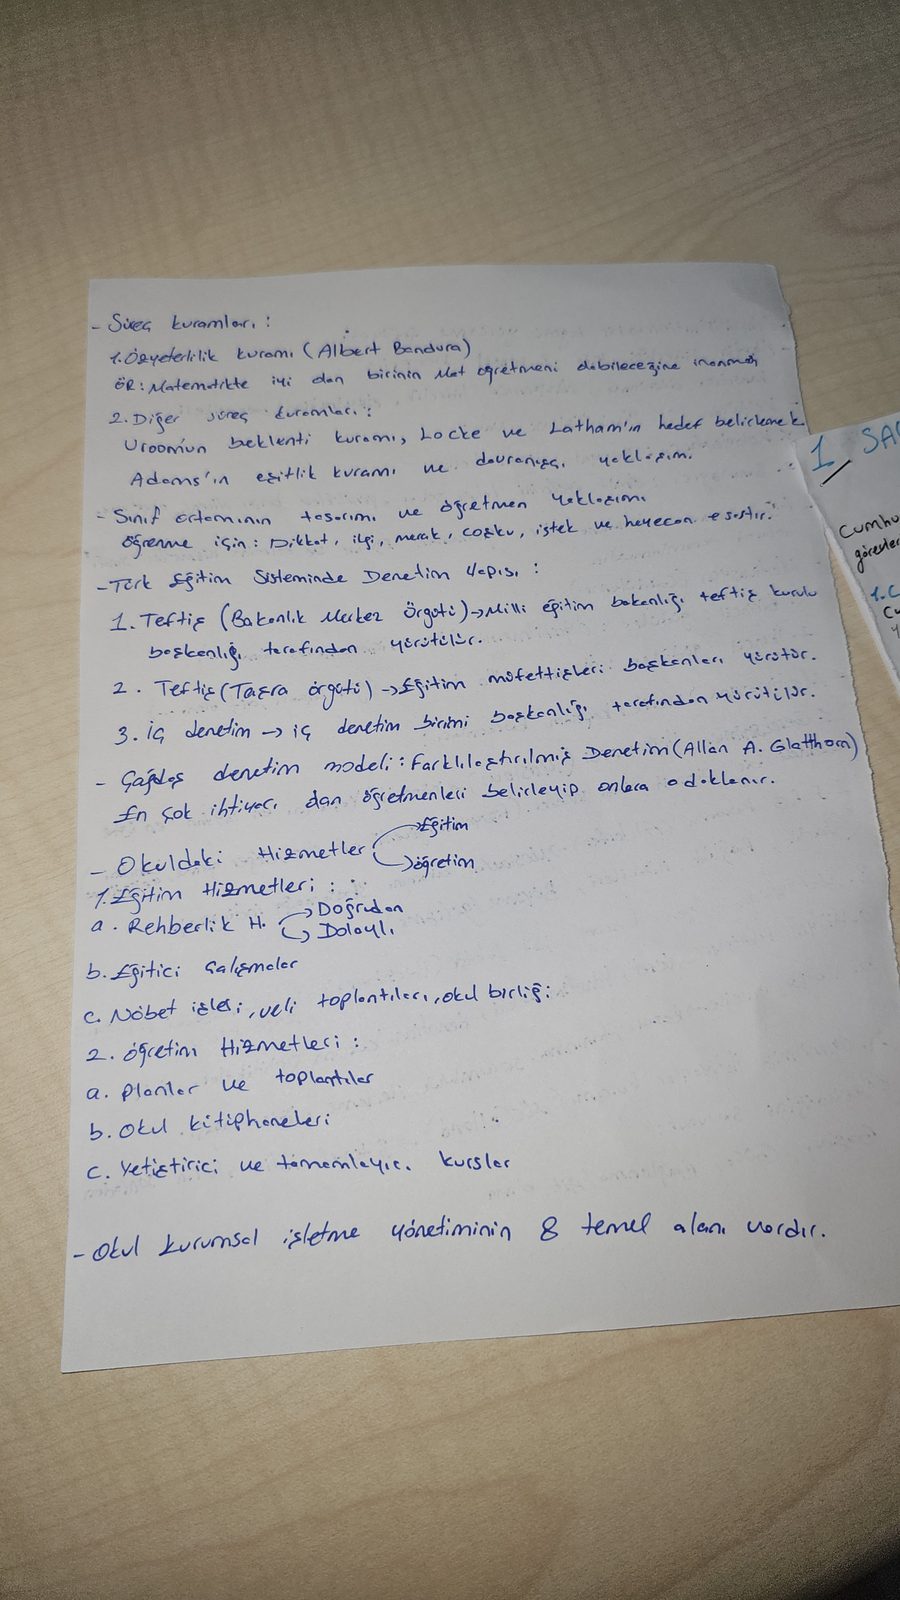 - Süreç kuramları :
1. Özyeterlilik kuramı (Albert Bandura)
ÖR: Matematikte iyi olan birinin Mat öğretmeni olabileceğine inanması
2. Diğer süreç kuramları :
Vroom'un beklenti kuramı, Locke ve Latham'ın hedef belirleme k.
Adams'ın eşitlik kuramı ve davranışçı yaklaşım.
- Sınıf ortamının tasarımı ve öğretmen yaklaşımı
Öğrenme için: Dikkat, ilgi, merak, coşku, istek ve heyecan esastır.
- Türk Eğitim Sisteminde Denetim Yapısı :
1. Teftiş (Bakanlık Merkez Örgütü) → Milli eğitim bakanlığı teftiş kurulu
başkanlığı tarafından yürütülür.
2. Teftiş (Taşra örgütü) → Eğitim müfettişleri başkanları yürütür.
3. İç denetim → iç denetim birimi başkanlığı tarafından yürütülür.
- Çağdaş denetim modeli : Farklılaştırılmış Denetim (Allan A. Glatthorn)
En çok ihtiyacı olan öğretmenleri belirleyip onlara odaklanır.
- Okuldaki Hizmetler → Eğitim
→ öğretim
1. Eğitim Hizmetleri :
a. Rehberlik H. → Doğrudan
→ Dolaylı
b. Eğitici Çalışmalar
c. Nöbet işleri, veli toplantıları, okul birliği
2. Öğretim Hizmetleri :
a. Planlar ve toplantılar
b. Okul kitiphaneleri
c. Yetiştirici ve tamamlayıcı kurslar
- Okul kurumsal işletme yönetiminin 8 temel alanı vardır.
1 SA
Cumhu
görevler
1. C
Cu